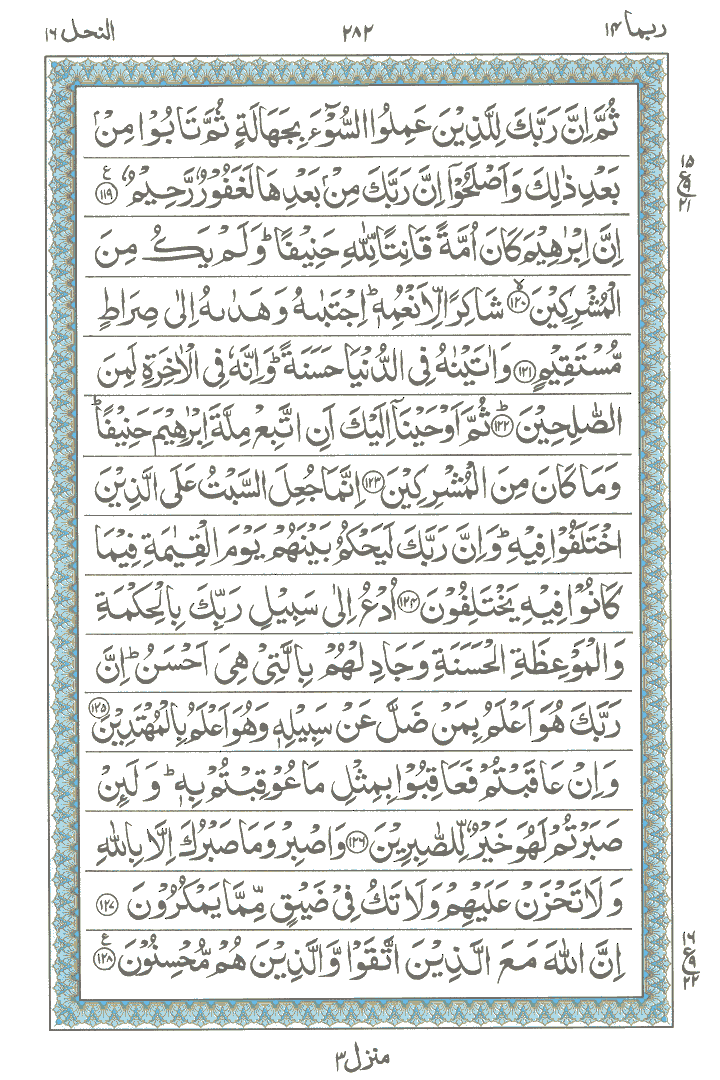 ربما ١٤ ٢٨٢ النحل ١٦
ثُمَّ اِنَّ رَبَّكَ لِلَّذِيْنَ عَمِلُوا السُّوْٓءَ بِجَهَالَةٍ ثُمَّ تَابُوْا مِنْۢ
بَعْدِ ذٰلِكَ وَاَصْلَحُوْۤا اِنَّ رَبَّكَ مِنْۢ بَعْدِهَا لَغَفُوْرٌ رَّحِيْمٌ ﴿١١٩﴾ ع
١٥
ع ٩
٢١
اِنَّ اِبْرٰهِيْمَ كَانَ اُمَّةً قَانِتًا لِّلّٰهِ حَنِيْفًا ؕ وَلَمْ يَكُ مِنَ
الْمُشْرِكِيْنَ ﴿١٢٠﴾ ۙ شَاكِرًا لِّاَنْعُمِهٖ ؕ اِجْتَبٰىهُ وَهَدٰىهُ اِلٰى صِرَاطٍ
مُّسْتَقِيْمٍ ﴿١٢١﴾ وَاٰتَيْنٰهُ فِى الدُّنْيَا حَسَنَةً ؕ وَاِنَّهٗ فِى الْاٰخِرَةِ لَمِنَ
الصّٰلِحِيْنَ ﴿١٢٢﴾ ؕ ثُمَّ اَوْحَيْنَاۤ اِلَيْكَ اَنِ اتَّبِعْ مِلَّةَ اِبْرٰهِيْمَ حَنِيْفًا ؕ
وَمَا كَانَ مِنَ الْمُشْرِكِيْنَ ﴿١٢٣﴾ اِنَّمَا جُعِلَ السَّبْتُ عَلَى الَّذِيْنَ
اخْتَلَفُوْا فِيْهِ ؕ وَاِنَّ رَبَّكَ لَيَحْكُمُ بَيْنَهُمْ يَوْمَ الْقِيٰمَةِ فِيْمَا
كَانُوْا فِيْهِ يَخْتَلِفُوْنَ ﴿١٢٤﴾ اُدْعُ اِلٰى سَبِيْلِ رَبِّكَ بِالْحِكْمَةِ
وَالْمَوْعِظَةِ الْحَسَنَةِ وَجَادِلْهُمْ بِالَّتِىْ هِىَ اَحْسَنُ ؕ اِنَّ
رَبَّكَ هُوَ اَعْلَمُ بِمَنْ ضَلَّ عَنْ سَبِيْلِهٖ وَهُوَ اَعْلَمُ بِالْمُهْتَدِيْنَ ﴿١٢٥﴾
وَاِنْ عَاقَبْتُمْ فَعَاقِبُوْا بِمِثْلِ مَا عُوْقِبْتُمْ بِهٖ ؕ وَلَئِنْ
صَبَرْتُمْ لَهُوَ خَيْرٌ لِّلصّٰبِرِيْنَ ﴿١٢٦﴾ وَاصْبِرْ وَمَا صَبْرُكَ اِلَّا بِاللّٰهِ
وَلَا تَحْزَنْ عَلَيْهِمْ وَلَا تَكُ فِىْ ضَيْقٍ مِّمَّا يَمْكُرُوْنَ ﴿١٢٧﴾
اِنَّ اللّٰهَ مَعَ الَّذِيْنَ اتَّقَوْا وَّالَّذِيْنَ هُمْ مُّحْسِنُوْنَ ﴿١٢٨﴾ ع
١٦
ع ٩
٢٢
منزل ٣